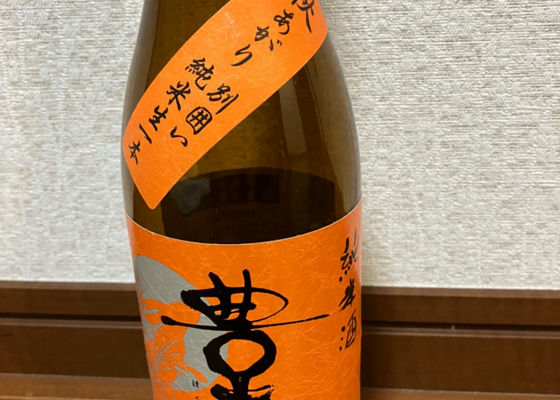 秋あがり
別囲い
純米生一本
純米酒
豊
ほ